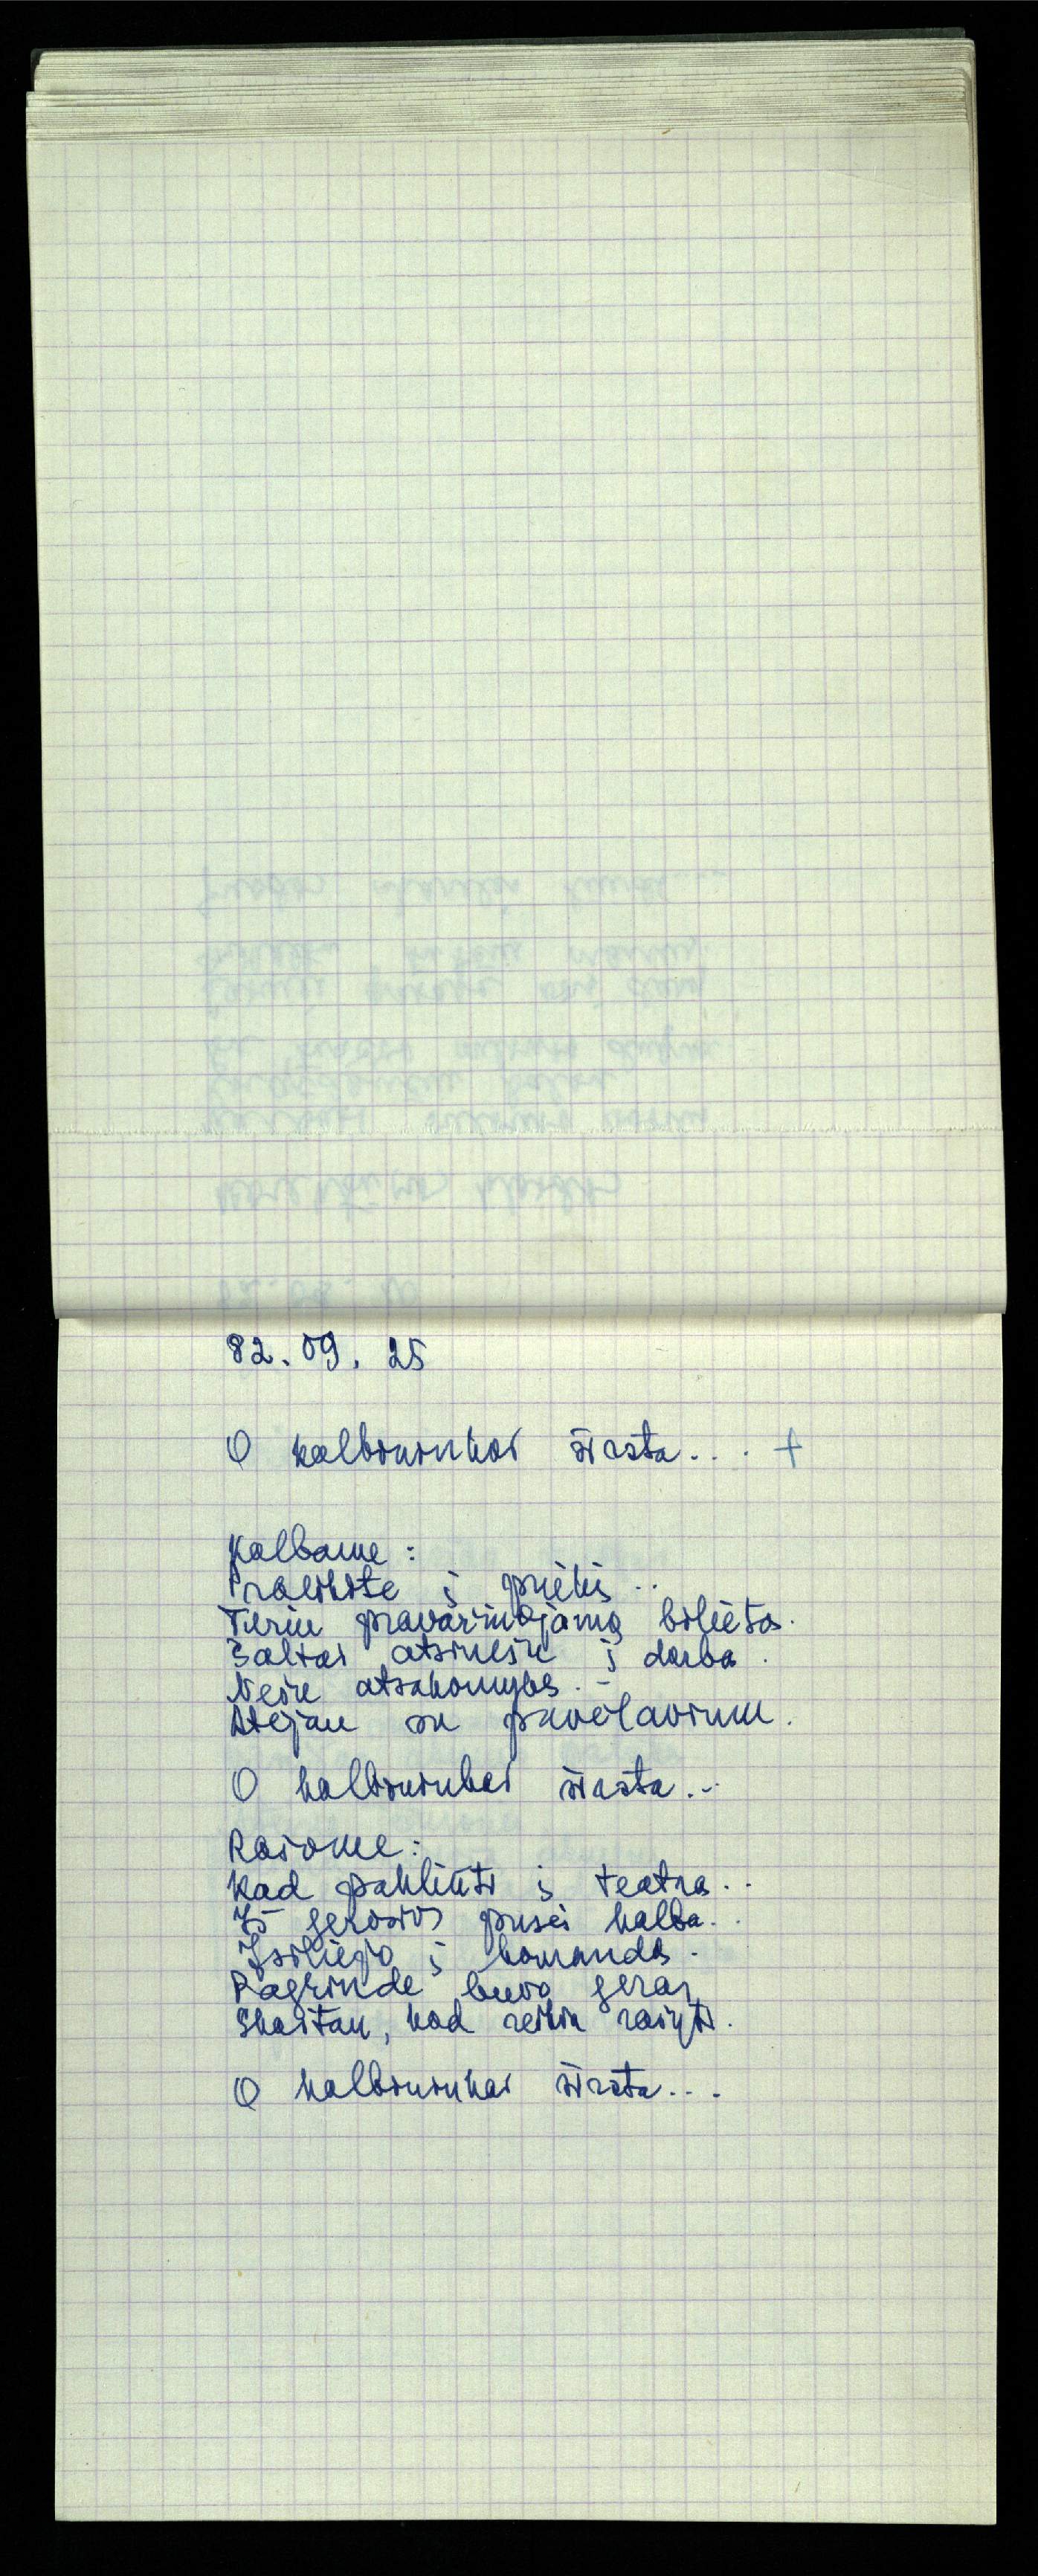 82.09.25
O kalbininkai širsta... +
Kalbame:
Praeikite į priekį..
Turiu pravažiuojamą bilietą.
Šaltai atsinešu į darbą.
Nešu atsakomybę.-
Atėjau su pavėlavimu.
O kalbininkai širsta...
Rašome:
Kad pakliūti į teatrą..
Iš gerosios pusės kalba..
Įsiliejo į komandą.
Pagrinde buvo gerai
Skaitau, kad reikia rašyti.
O kalbininkai širsta...